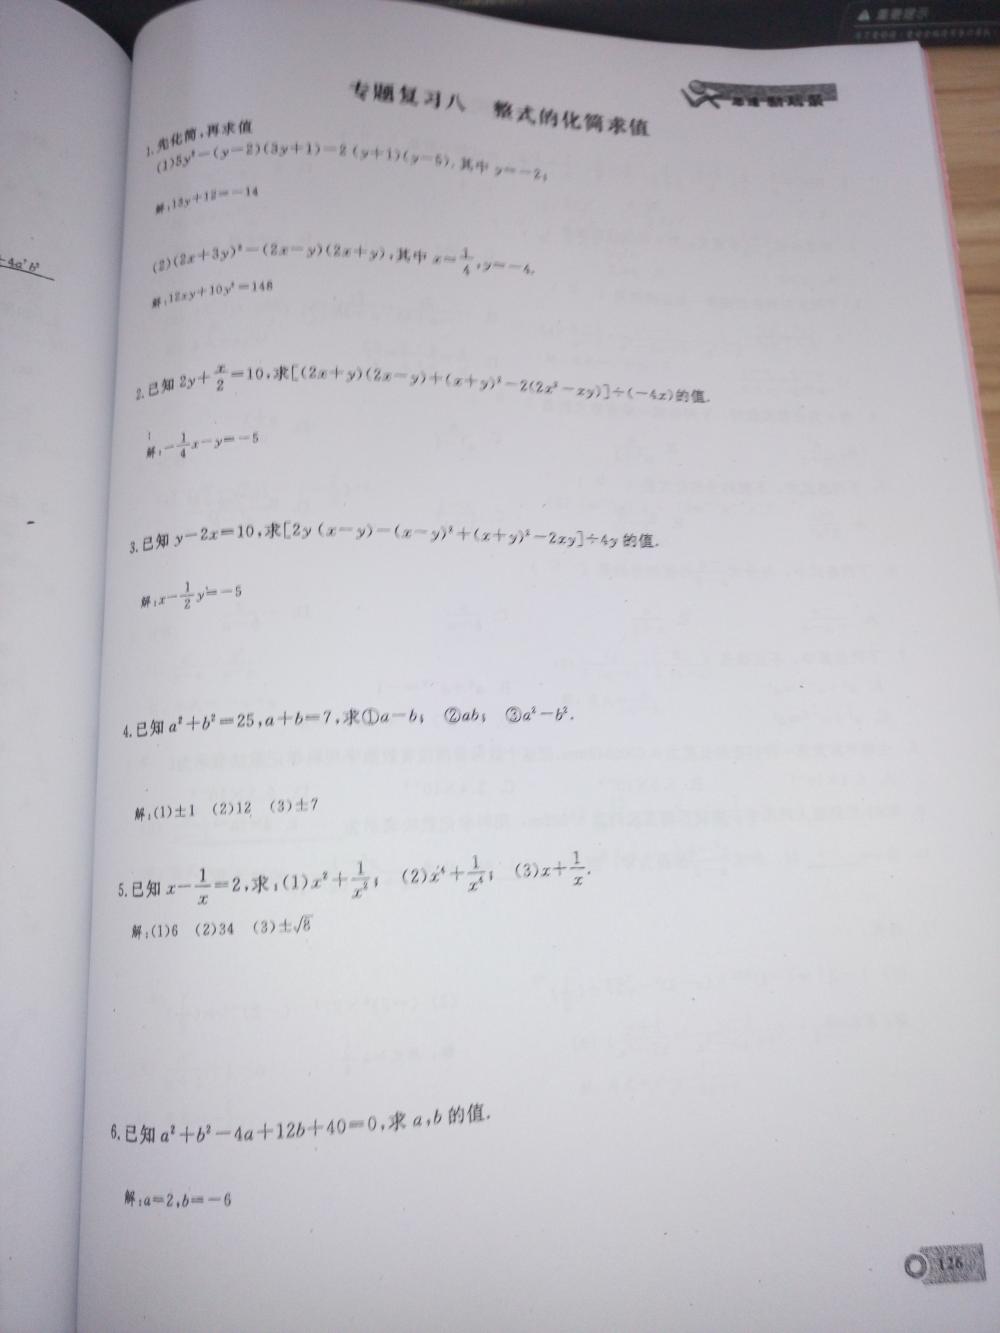 重要提示
专题复习八 整式的化简求值
1.先化简,再求值
(1)5y²-(y-2)(3y+1)-2(y+1)(y-5),其中 y=-2;
解:13y+12=-14
(2)(2x+3y)²-(2x-y)(2x+y),其中 x=1/4,y=-4.
解:12xy+10y²=148
2.已知 2y+x/2=10,求[(2x+y)(2x-y)+(x+y)²-2(2x²-xy)]÷(-4x)的值.
解:-1/4x-y=-5
3.已知 y-2x=10,求[2y(x-y)-(x-y)²+(x+y)²-2xy]÷4y 的值.
解:x-1/2y=-5
4.已知 a²+b²=25,a+b=7,求①a-b; ②ab; ③a²-b².
解:(1)±1 (2)12 (3)±7
5.已知 x-1/x=2,求:(1)x²+1/x²; (2)x⁴+1/x⁴; (3)x+1/x.
解:(1)6 (2)34 (3)±√8
6.已知 a²+b²-4a+12b+40=0,求 a,b 的值.
解:a=2,b=-6
126